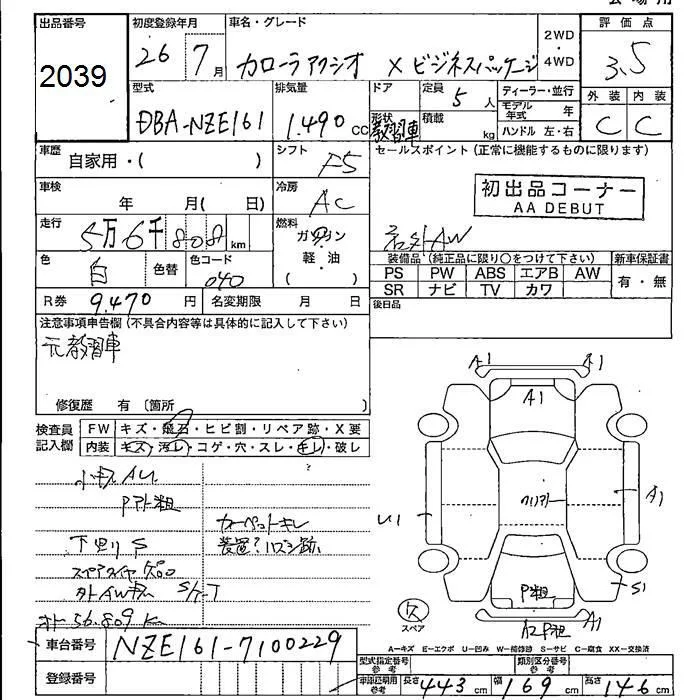 出品番号 初度登録年月 車名・グレード 評価点
2039 26年7月 カローラアクシオ X ビジネスパッケージ 2WD・4WD 3.5
型式 排気量 ドア 定員 ディーラー・並行 外装 内装
DBA-NZE161 1,490cc 形状 教習車 5人 積載 kg モデル年式 年 ハンドル 左・右 C C
車歴 自家用・( ) シフト F5 セールスポイント(正常に機能するものに限ります)
車検 年 月( 日) 冷房 AC 初出品コーナー
AA DEBUT
走行 5万6千808km 燃料 ガソリン・軽・油( ) 社外AW
色 白 色替 色コード 040 装備品(純正品に限り○をつけて下さい) 新車保証書
PS PW ABS エアB AW 有・無
SR ナビ TV カワ
R券 9,470円 名変期限 月 日 後日品
注意事項申告欄(不具合内容等は具体的に記入して下さい)
元教習車
修復歴 有 〔箇所 〕
検査員記入欄 FW キズ・飛石・ヒビ割・リペア跡・X要
内装 キズ・汚レ・コゲ・穴・スレ・キレ・破レ
小キズ AU
Pアト粗
カーペットキレ
下廻り S 装置?ハズシ跡
スペアタイヤ欠品
外AWキズ S/T
オト 56,809K
A1 A1
A1
クリアハゲ A1
U1
P粗 S1
欠 A2 P粗 A1
スペア
A=キズ E=エクボ U=凹み W=補修跡 S=サビ C=腐食 XX=交換済
車台番号 NZE161-7100229 型式指定番号 参考 類別区分番号 参考
登録番号 車庫証明用参考 長さ 443cm 幅 169cm 高さ 146cm